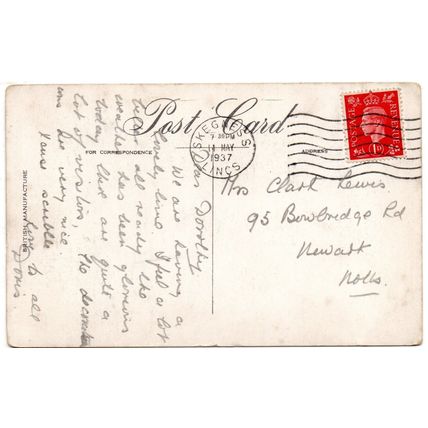 Post Card
FOR CORRESPONDENCE
ADDRESS
BRITISH MANUFACTURE
SKEGNESS
7 30 PM
14 MAY
1937
LINCS
POSTAGE
REVENUE
1D
Mrs Clark Lewis.
95 Bowbridge Rd
Newark
Notts.
Dear Dorothy
We are having a
lovely time. I feel a lot
better already the
weather has been glorious
today. There are quite a
lot of visitors. The decorations
are very nice.
Xcuse scribble
Love to all
Doris.